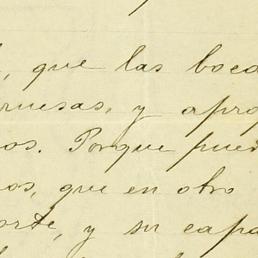 , que las boca
ruesas, y apro
os. Porque pue
os, que en otro
orte, y su capa